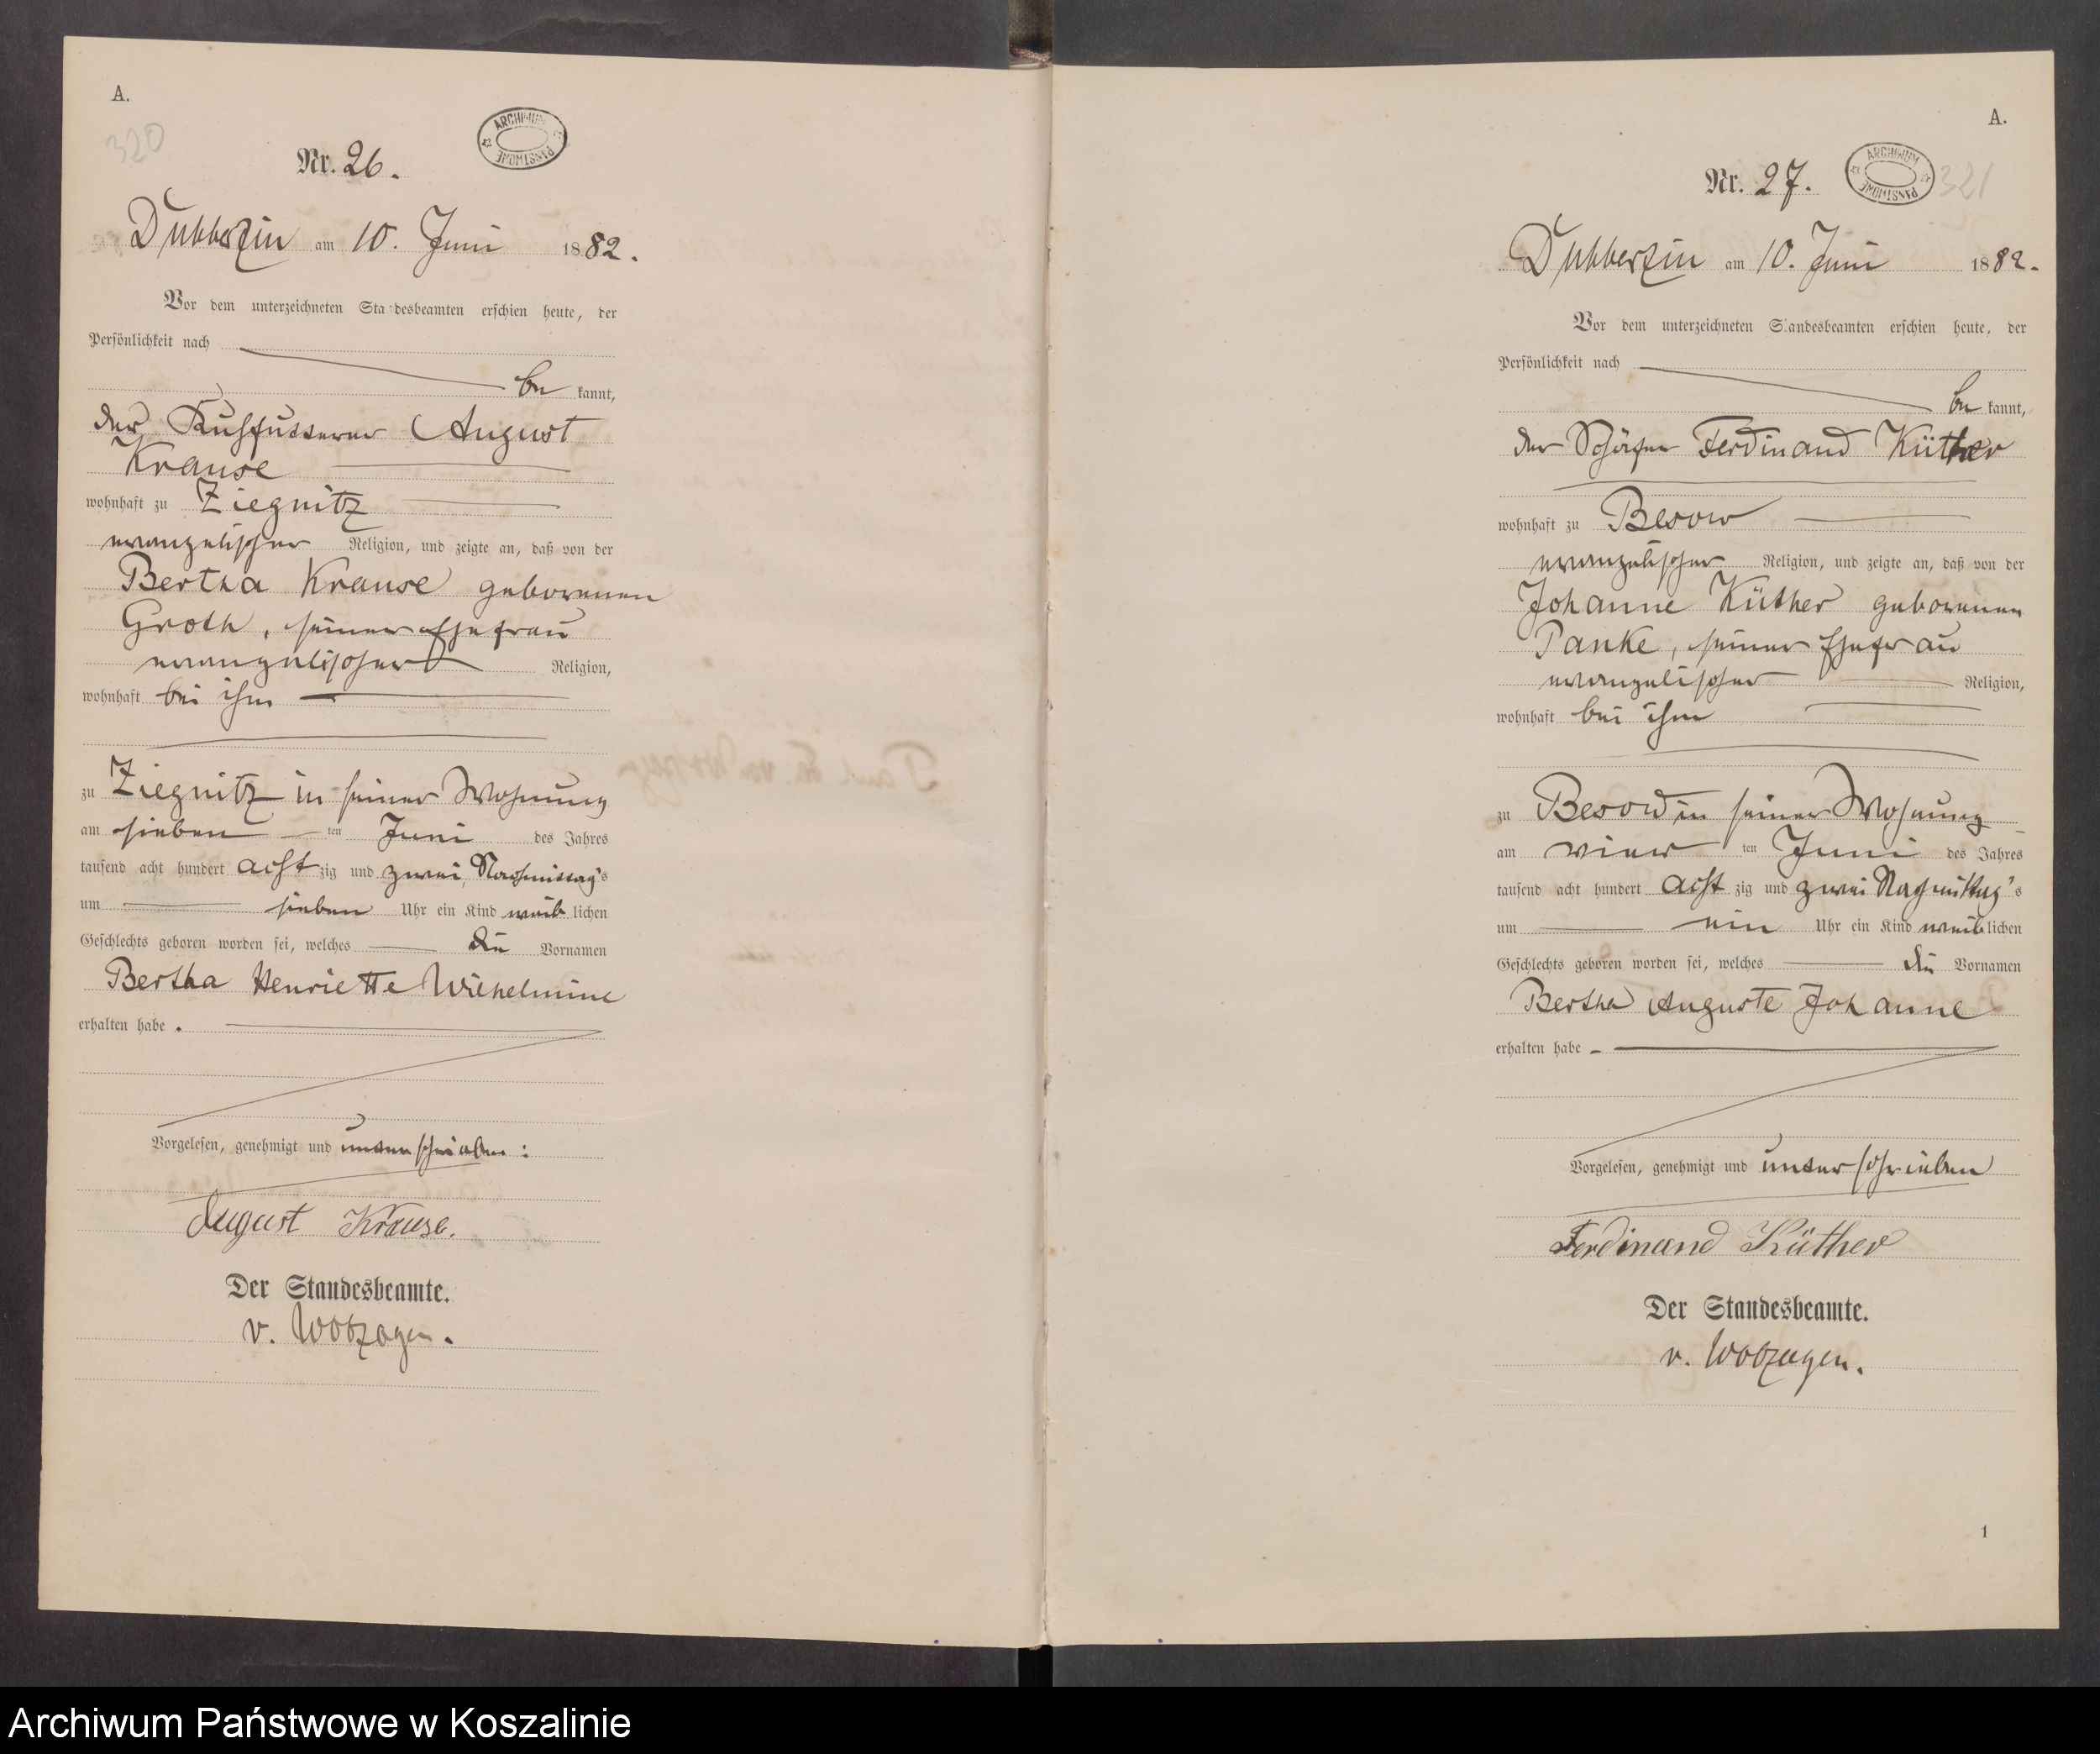 A.
320
Nr. 26.
ARCHIWUM PAŃSTWOWE
Dubberzin am 10. Juni 1882.
Vor dem unterzeichneten Standesbeamten erschien heute, der
Persönlichkeit nach
be kannt,
der Kuhfütterer August
Krause
wohnhaft zu Ziegnitz
evangelischer Religion, und zeigte an, daß von der
Bertha Krause geborenen
Groth, seiner Ehefrau
evangelischer Religion,
wohnhaft bei ihm
zu Ziegnitz in seiner Wohnung
am sieben ten Juni des Jahres
tausend acht hundert acht zig und zwei, Nachmittag's
um sieben Uhr ein Kind weib lichen
Geschlechts geboren worden sei, welches die Vornamen
Bertha Henriette Wilhelmine
erhalten habe.
Vorgelesen, genehmigt und unterschrieben:
August Krause.
Der Standesbeamte.
v. Wolzogen.
A.
Nr. 27.
ARCHIWUM PAŃSTWOWE
321
Dubberzin am 10. Juni 1882.
Vor dem unterzeichneten Standesbeamten erschien heute, der
Persönlichkeit nach
be kannt,
der Schäfer Ferdinand Küther
wohnhaft zu Besow
evangelischer Religion, und zeigte an, daß von der
Johanne Küther geborenen
Panke, seiner Ehefrau
evangelischer Religion,
wohnhaft bei ihm
zu Besow in seiner Wohnung
am vier ten Juni des Jahres
tausend acht hundert acht zig und zwei Nachmittag's
um ein Uhr ein Kind weib lichen
Geschlechts geboren worden sei, welches die Vornamen
Bertha Auguste Johanne
erhalten habe
Vorgelesen, genehmigt und unterschrieben
Ferdinand Küther
Der Standesbeamte.
v. Wolzogen.
1
Archiwum Państwowe w Koszalinie